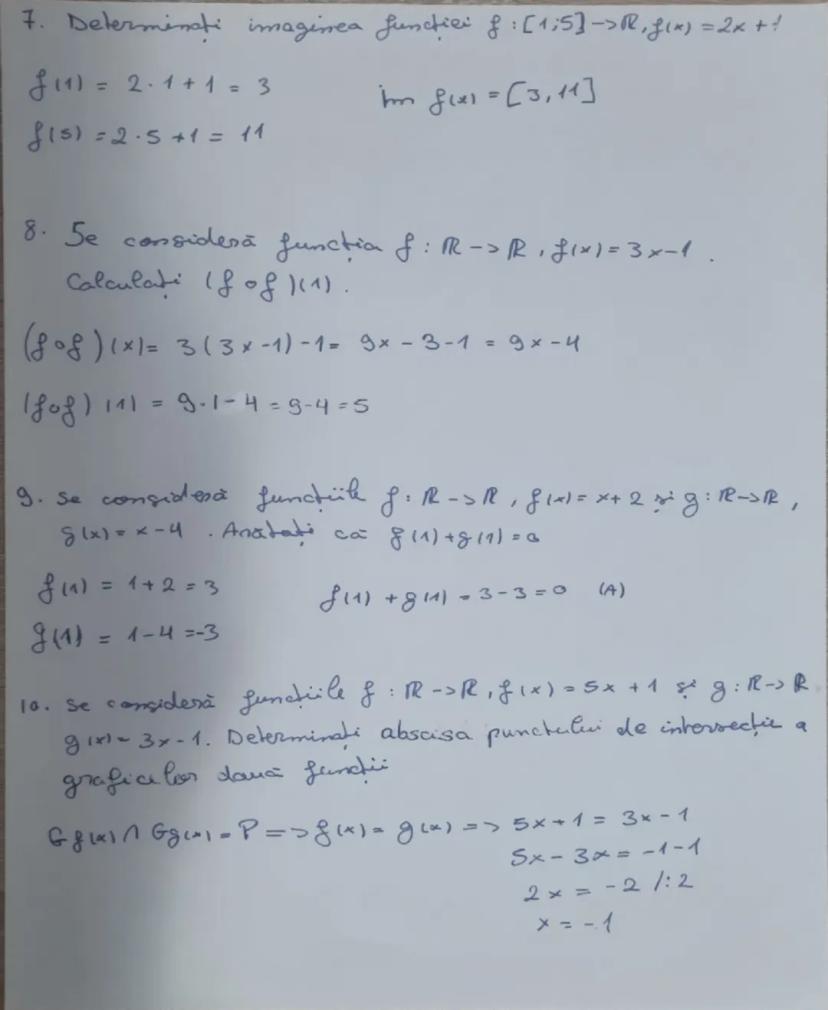 7. Determinați imaginea funcției f : [1;5] -> ℝ, f(x) = 2x + 1
f(1) = 2 · 1 + 1 = 3
Im f(x) = [3, 11]
f(5) = 2 · 5 + 1 = 11
8. Se consideră funcția f : ℝ -> ℝ, f(x) = 3x - 1.
Calculați (f o f)(1).
(f o f)(x) = 3(3x - 1) - 1 = 9x - 3 - 1 = 9x - 4
(f o f)(1) = 9 · 1 - 4 = 9 - 4 = 5
9. Se consideră funcțiile f : ℝ -> ℝ, f(x) = x + 2 și g : ℝ -> ℝ,
g(x) = x - 4. Arătați că f(1) + g(1) = 0
f(1) = 1 + 2 = 3
f(1) + g(1) = 3 - 3 = 0 (A)
g(1) = 1 - 4 = -3
10. Se consideră funcțiile f : ℝ -> ℝ, f(x) = 5x + 1 și g : ℝ -> ℝ
g(x) = 3x - 1. Determinați abscisa punctului de intersecție a
graficelor două funcții
Gf(x) ∩ Gg(x) = P => f(x) = g(x) => 5x + 1 = 3x - 1
5x - 3x = -1 - 1
2x = -2 /:2
x = -1